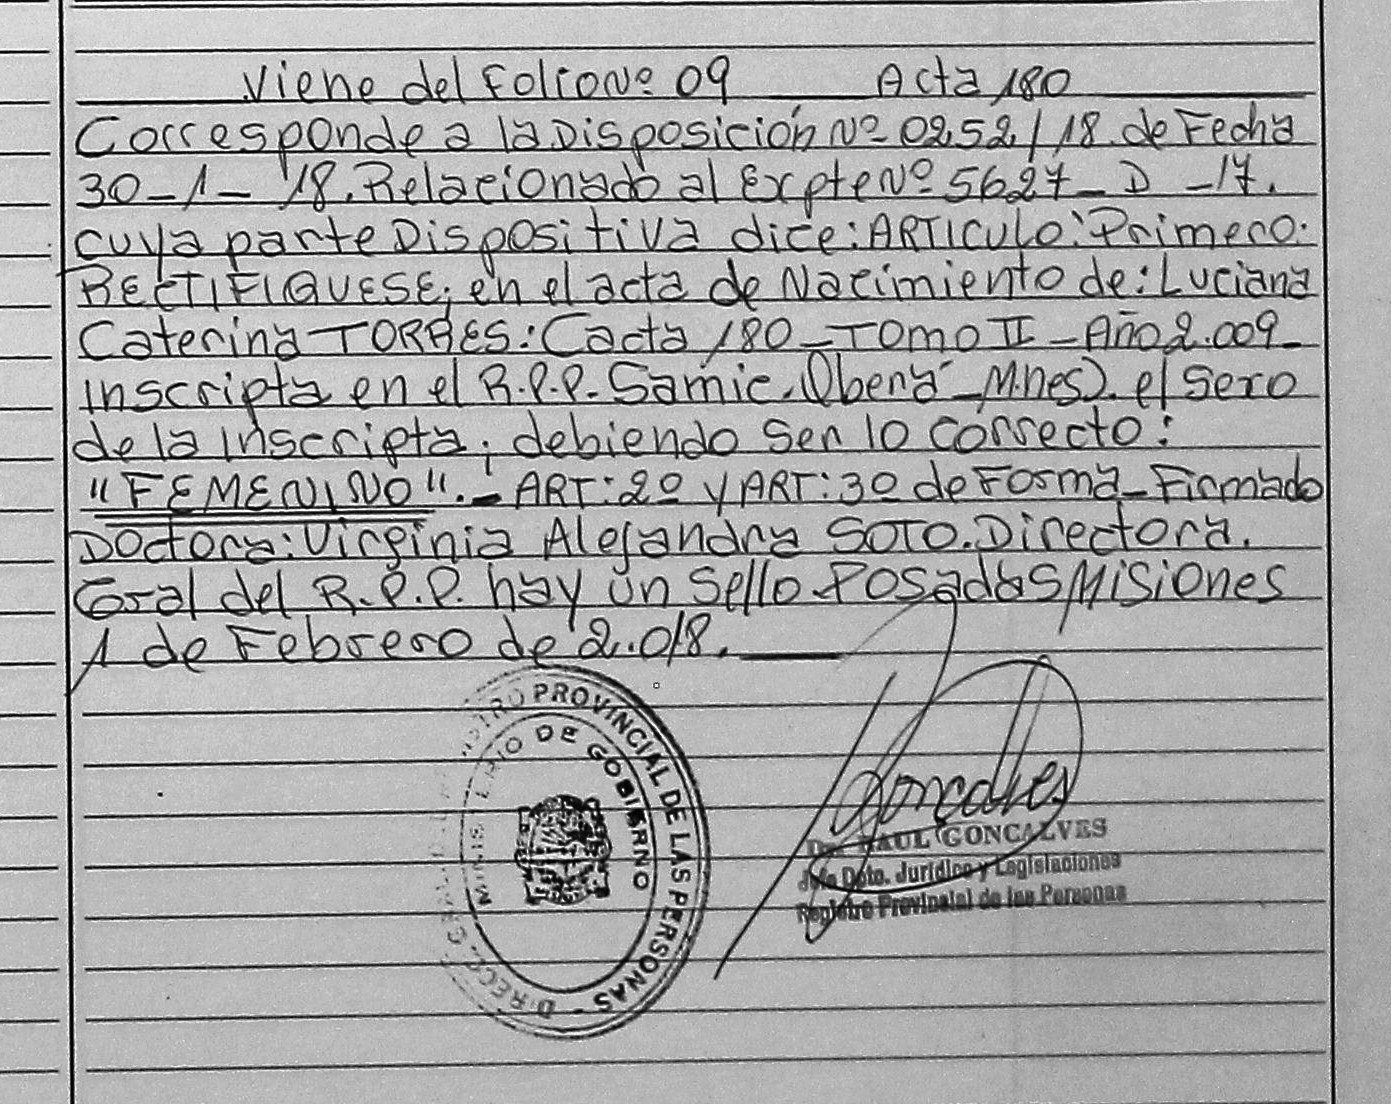 Viene del Folio Nº 09 Acta 180
Corresponde a la Disposición Nº 0252/18. de Fecha
30-1-18. Relacionado al Expte Nº 5627-D-17.
cuya parte Dispositiva dice: ARTICULO: Primero:
RECTIFIQUESE; en el acta de Nacimiento de: Luciana
Caterina TORRES: (acta 180 - TOMO II - Año 2.009-
Inscripta en el R.P.P. Samic. Oberá - M.nes). el sexo
de la Inscripta; debiendo ser lo correcto:
"FEMENINO".- ART: 2º y ART: 3º de Forma - Firmado
Doctora: Virginia Alejandra SOTO. Directora.
Gral del R.P.P. hay un sello. Posadas Misiones
1 de Febrero de 2.018.
PROVINCIAL DE LAS PERSONAS - DIRECC. GRAL.
MINISTERIO DE GOBIERNO
Goncalves
Dr. RAUL GONCALVES
Jefe Dpto. Jurídico y Legislaciones
Registro Provincial de las Personas